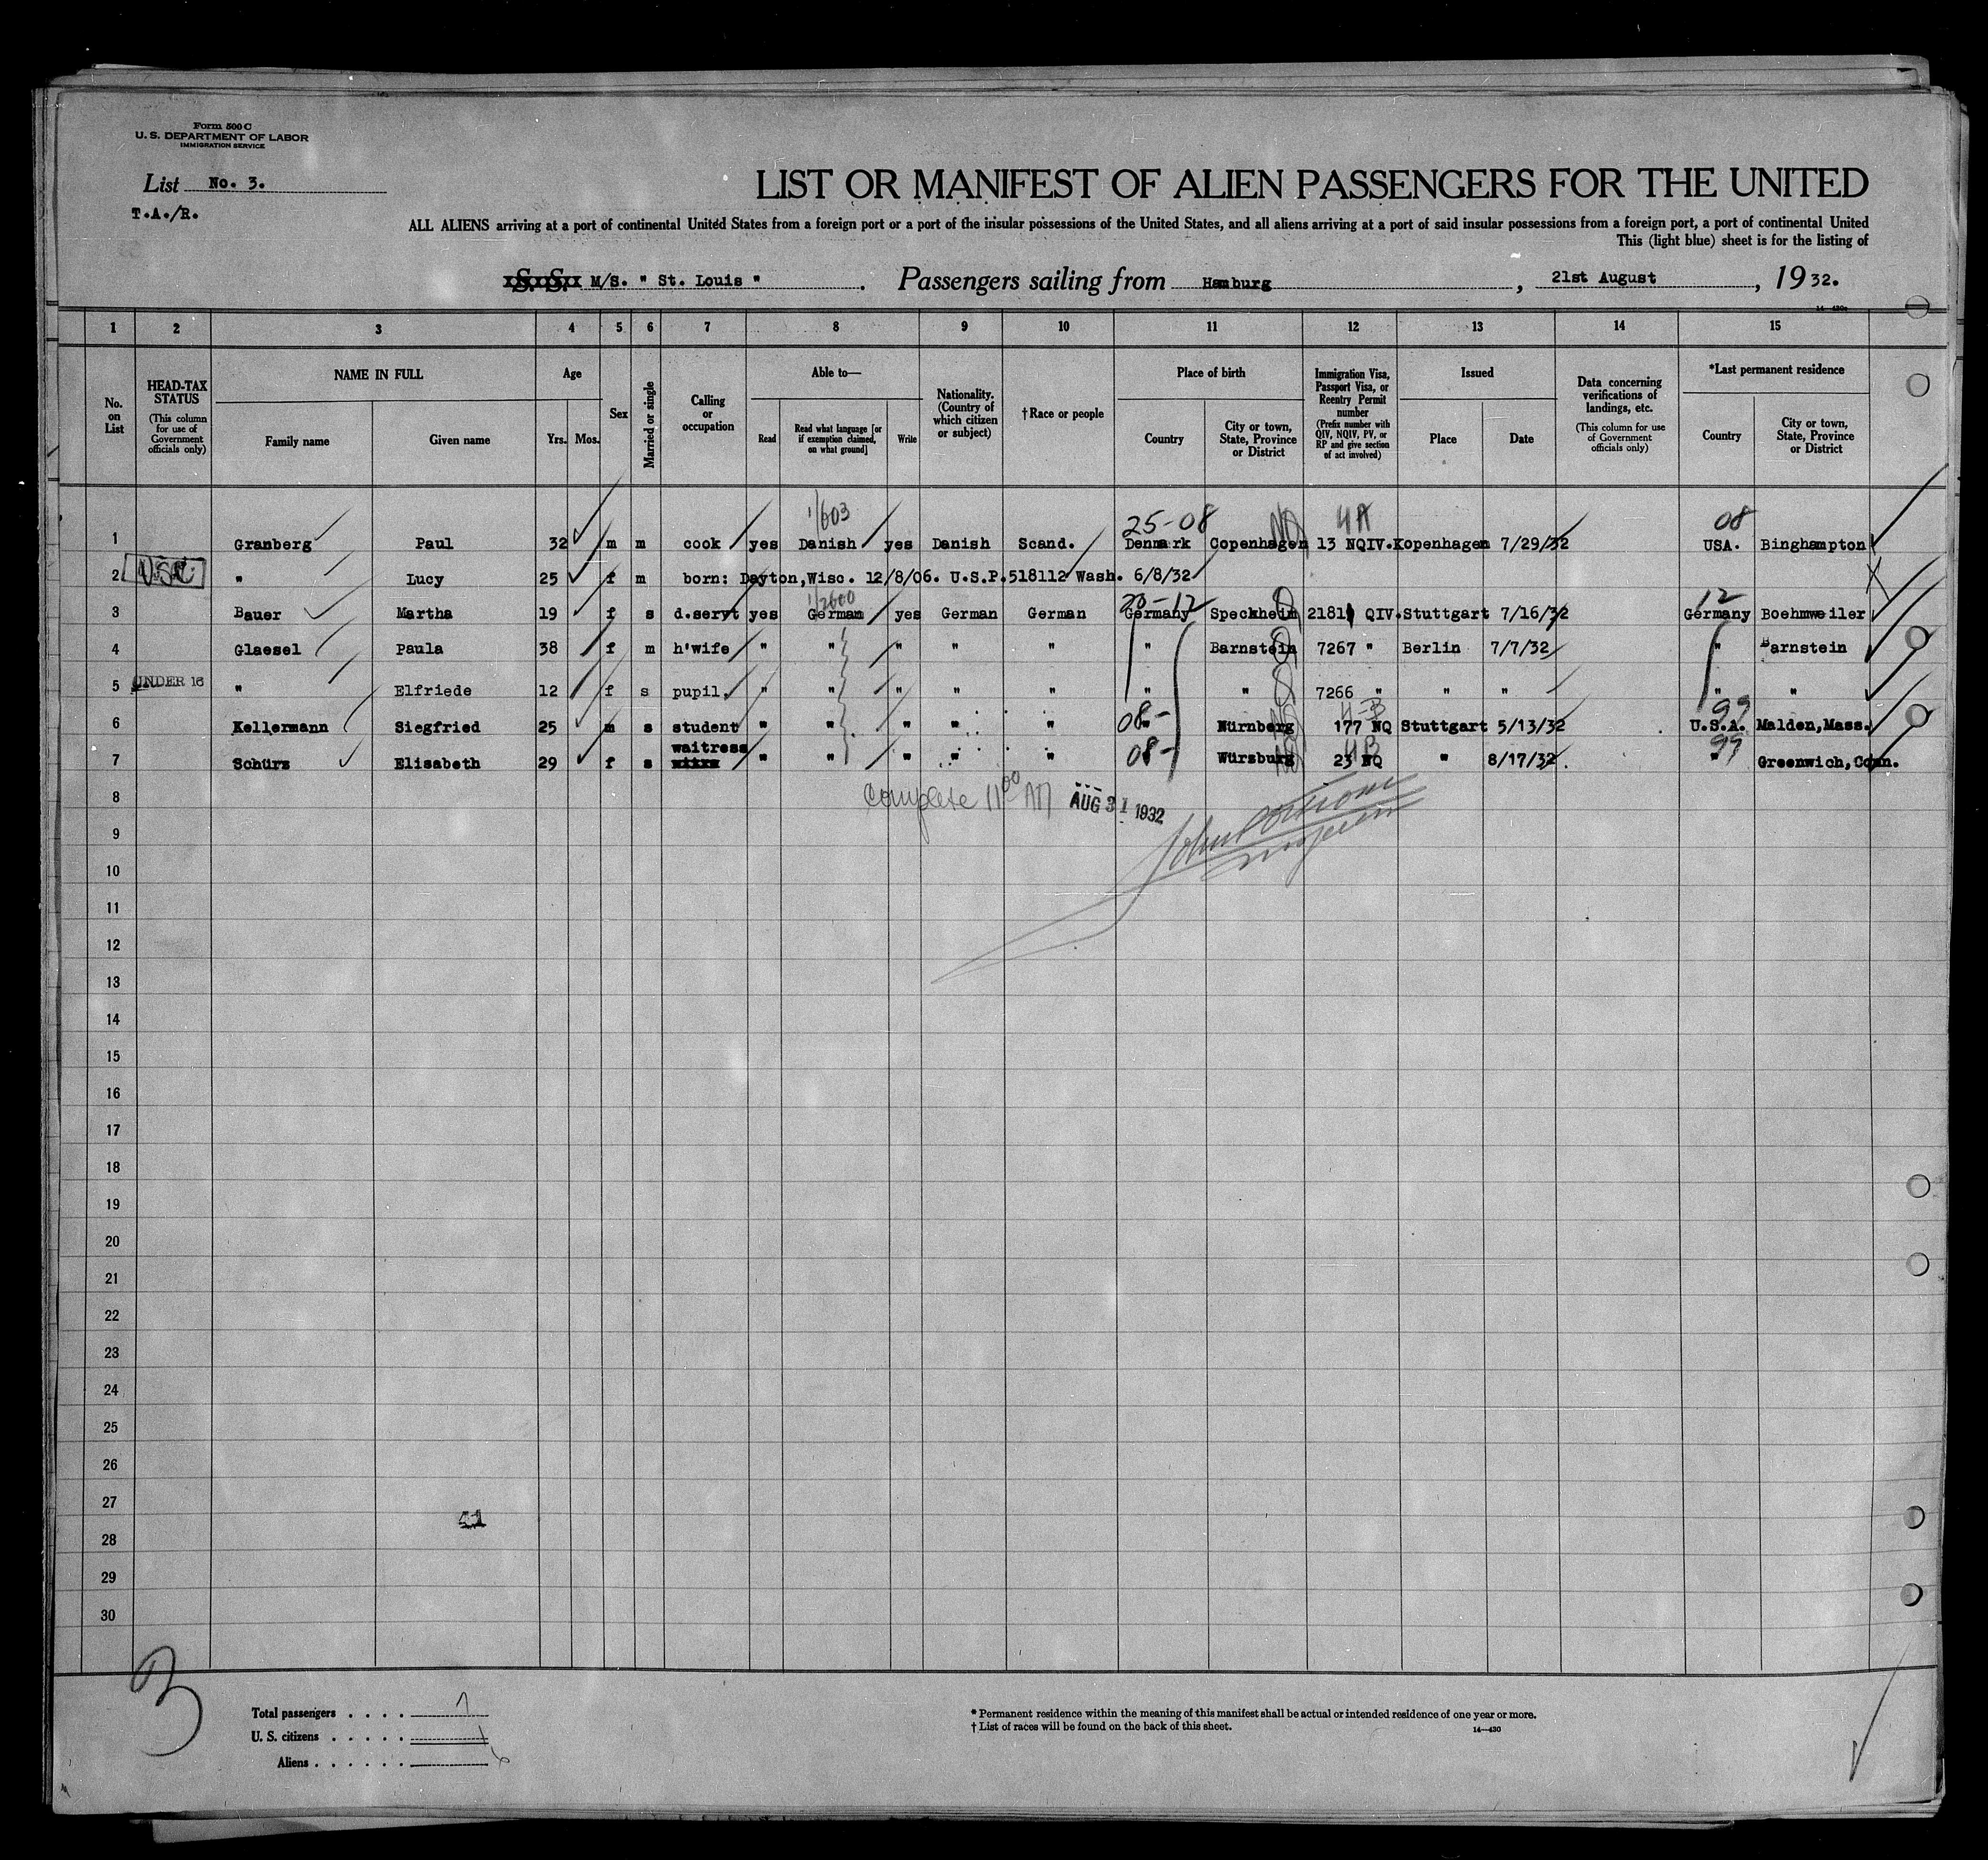 Form 500 C
U. S. DEPARTMENT OF LABOR
IMMIGRATION SERVICE
List No. 3.
T.A./R.
LIST OR MANIFEST OF ALIEN PASSENGERS FOR THE UNITED
ALL ALIENS arriving at a port of continental United States from a foreign port or a port of the insular possessions of the United States, and all aliens arriving at a port of said insular possessions from a foreign port, a port of continental United
This (light blue) sheet is for the listing of
S. S. M/S. " St. Louis ". Passengers sailing from Hamburg, 21st August, 1932.
1 2 3 4 5 6 7 8 9 10 11 12 13 14 15
No. on List
HEAD-TAX STATUS
(This column for use of Government officials only)
NAME IN FULL
Family name
Given name
Age
Yrs. Mos.
Sex
Married or single
Calling or occupation
Able to—
Read
Read what language [or if exemption claimed, on what ground]
Write
Nationality. (Country of which citizen or subject)
†Race or people
Place of birth
Country
City or town, State, Province or District
Immigration Visa, Passport Visa, or Reentry Permit number
(Prefix number with QIV, NQIV, PV, or RP and give section of act involved)
Issued
Place
Date
Data concerning verifications of landings, etc.
(This column for use of Government officials only)
*Last permanent residence
Country
City or town, State, Province or District
1/603 25-08 NA 4A 08
1 Granberg Paul 32 m m cook yes Danish yes Danish Scand. Denmark Copenhagen 13 NQIV. Kopenhagen 7/29/32 USA. Binghampton
2 USC " Lucy 25 f m born: Dayton,Wisc. 12/8/06. U.S.P.518112 Wash. 6/8/32
1/2600 20-12 12
3 Bauer Martha 19 f s d.servt yes German yes German German Germany Speckheim 2181 QIV. Stuttgart 7/16/32 Germany Boehmweiler
4 Glaesel Paula 38 f m h'wife " " " " " " Barnstein 7267 " Berlin 7/7/32 " Barnstein
5 UNDER 16 " Elfriede 12 f s pupil. " " " " " " " 7266 " " " " "
08- 4-B 99
6 Kellermann Siegfried 25 m s student " " " " " " Nürnberg 177 NQ Stuttgart 5/13/32 U.S.A. Malden,Mass.
waitress 08- 4B 99
7 Schürz Elisabeth 29 f s " " " " " Würzburg 23 NQ " 8/17/32. " Greenwich, Conn.
8 Complete 11 00 AM AUG 31 1932
9
10
11
12
13
14
15
16
17
18
19
20
21
22
23
24
25
26
27
41
28
29
30
3
Total passengers . . . . 7
U. S. citizens . . . . . 1
Aliens . . . . . . 6
* Permanent residence within the meaning of this manifest shall be actual or intended residence of one year or more.
† List of races will be found on the back of this sheet.
14—430